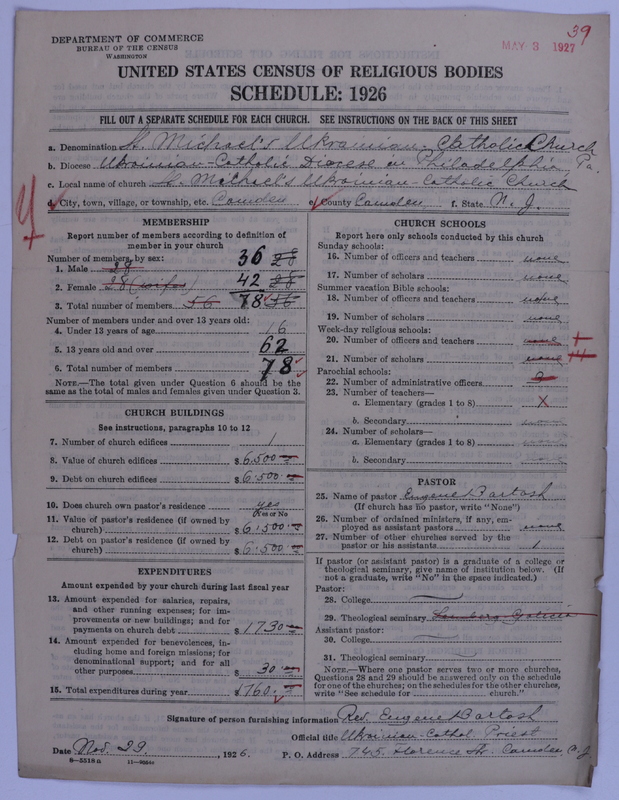 39
MAY 3 1927
DEPARTMENT OF COMMERCE
BUREAU OF THE CENSUS
WASHINGTON
UNITED STATES CENSUS OF RELIGIOUS BODIES
SCHEDULE: 1926
FILL OUT A SEPARATE SCHEDULE FOR EACH CHURCH. SEE INSTRUCTIONS ON THE BACK OF THIS SHEET
a. Denomination St. Michael's Ukrainian Catholic Church
b. Diocese Ukrainian-Catholic Diocese in Philadelphia, Pa.
c. Local name of church St. Michael's Ukrainian-Catholic Church
d. City, town, village, or township, etc. Camden e. County Camden f. State N. J.
MEMBERSHIP
Report number of members according to definition of
member in your church
Number of members, by sex:
1. Male 28 36 28
2. Female 28 (wifes) 42 28
3. Total number of members 56 78 56
Number of members under and over 13 years old:
4. Under 13 years of age 16
5. 13 years old and over 62
6. Total number of members 78
NOTE.—The total given under Question 6 should be the
same as the total of males and females given under Question 3.
CHURCH BUILDINGS
See instructions, paragraphs 10 to 12
7. Number of church edifices 1
8. Value of church edifices $ 6.500
9. Debt on church edifices $ 6.500
10. Does church own pastor's residence yes
Yes or No
11. Value of pastor's residence (if owned by
church) $ 6.500
12. Debt on pastor's residence (if owned by
church) $ 6.500
EXPENDITURES
Amount expended by your church during last fiscal year
13. Amount expended for salaries, repairs,
and other running expenses; for im-
provements or new buildings; and for
payments on church debt $ 1730
14. Amount expended for benevolences, in-
cluding home and foreign missions; for
denominational support; and for all
other purposes $ 30
15. Total expenditures during year $ 1760
CHURCH SCHOOLS
Report here only schools conducted by this church
Sunday schools:
16. Number of officers and teachers none
17. Number of scholars none
Summer vacation Bible schools:
18. Number of officers and teachers none
19. Number of scholars none
Week-day religious schools:
20. Number of officers and teachers none
21. Number of scholars none
Parochial schools:
22. Number of administrative officers
23. Number of teachers—
a. Elementary (grades 1 to 8) X
b. Secondary
24. Number of scholars—
a. Elementary (grades 1 to 8)
b. Secondary
PASTOR
25. Name of pastor Eugene Bartosh
(If church has no pastor, write "None")
26. Number of ordained ministers, if any, em-
ployed as assistant pastors none
27. Number of other churches served by the
pastor or his assistants 1
If pastor (or assistant pastor) is a graduate of a college or
theological seminary, give name of institution below. (If
not a graduate, write "No" in the space indicated.)
Pastor:
28. College
29. Theological seminary Lemberg Galicia
Assistant pastor:
30. College
31. Theological seminary
NOTE.—Where one pastor serves two or more churches,
Questions 28 and 29 should be answered only on the schedule
for one of the churches; on the schedules for the other churches,
write "See schedule for church."
Signature of person furnishing information Rev. Eugene Bartosh
Official title Ukrainian-Cathol. Priest
Date Nov. 29, 1926. P. O. Address 745 Florence St. Camden N. J.
8—5518a 11—9564c